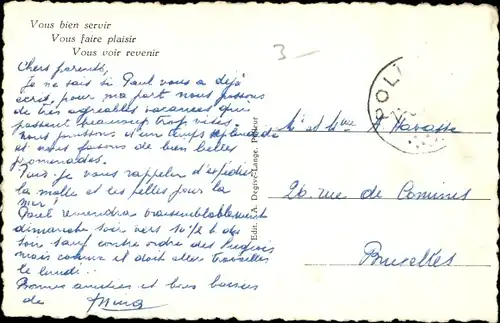 Vous bien servir
Vous faire plaisir
Vous voir revenir
Chers parents,
Je ne sais si Paul vous a déjà
écrit, pour ma part nous passons
de très agréables vacances qui
passent beaucoup trop vites.
Nous jouissons d'un temps splendide
et nous faisons de bien belles
promenades.
Puis-je vous rappeler d'expédier
la malle et les pelles pour la
mer!
Paul reviendra vraisemblablement
dimanche soir vers 10 h du
soir sauf contre ordre des
mais comme il doit aller travailler
le lundi...
Bonnes amitiés et bons baisers
de
3-
Edit. S.A. Degève-Lange, Pâturer
POL
Mr et Mme A Havasse
26 rue de Comines
Bruxelles